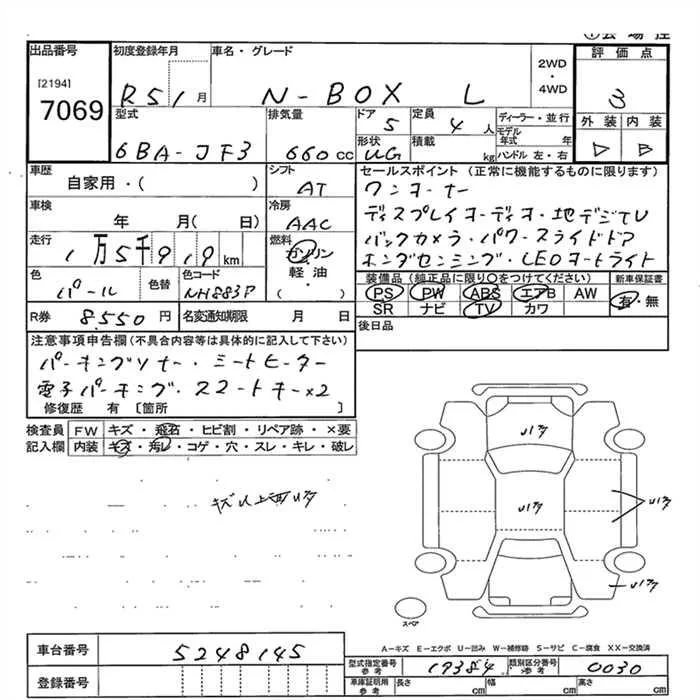 出品番号 初度登録年月 車名・グレード 2WD・4WD 評価点
[2194] 7069 R5 1月 N-BOX L 3
型式 排気量 ドア 定員 ディーラー・並行 外装 内装
6BA-JF3 660cc 5 4人 モデル年式 年
形状 積載 kg ハンドル 左・右
UG
車歴 シフト セールスポイント (正常に機能するものに限ります)
自家用・( ) AT ワンオーナー
車検 冷房 ディスプレイオーディオ・地デジTV
年 月( 日) AAC バックカメラ・パワースライドドア
走行 燃料 ホンダセンシング・LEDオートライト
1万5千919km ガソリン
軽油
・( )
色 色替 色コード 装備品 (純正品に限り○をつけてください) 新車保証書
パール NH883P PS PW ABS エアB AW 有・無
SR ナビ TV カワ
R券 8.550円 名変通知期限 月 日 後日品
注意事項申告欄(不具合内容等は具体的に記入して下さい)
パーキングソナー・シートヒーター
電子パーキング・スマートキー×2
修復歴 有 [箇所 ]
検査員 FW キズ・飛石・ヒビ割・リペア跡・×要
記入欄 内装 キズ・汚レ・コゲ・穴・スレ・キレ・破レ
スペア
A-キズ E-エクボ U-凹み W-補修跡 S-サビ C-腐食 XX-交換済
車台番号 5248145
登録番号
型式指定番号 参考 19384 類別区分番号 参考 0030
車庫証明用 参考 長さ cm 幅 cm 高さ cm